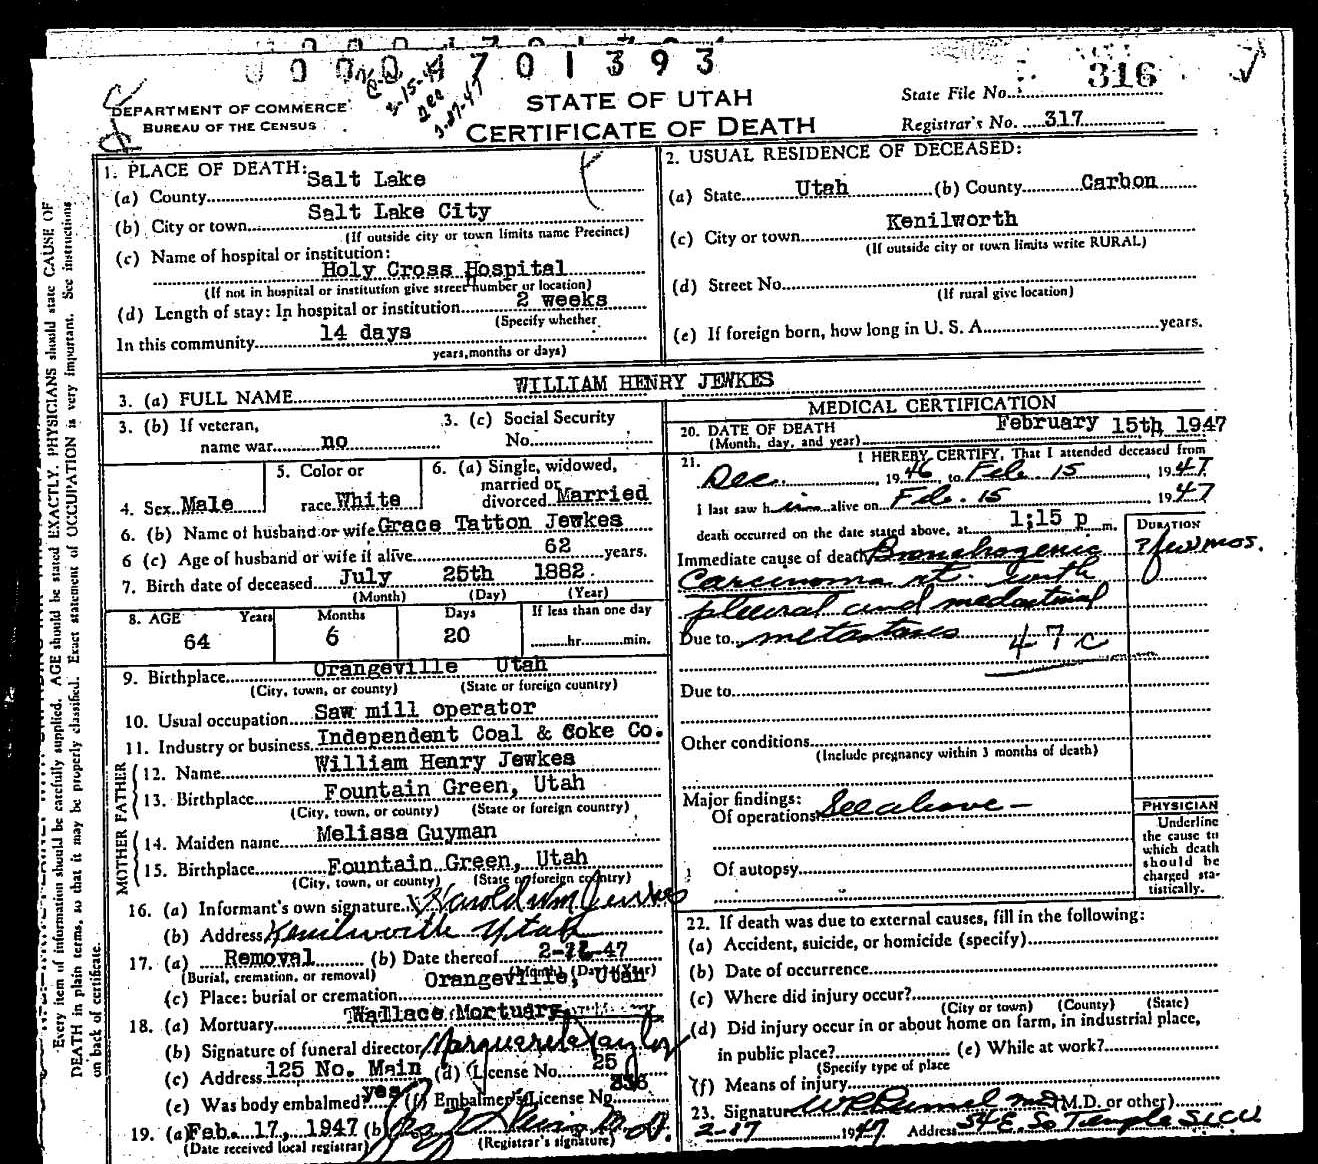 0 0 0 4 7 0 1 3 9 3
2-15-47
Dec
DEPARTMENT OF COMMERCE
BUREAU OF THE CENSUS
STATE OF UTAH
CERTIFICATE OF DEATH
State File No. 316
Registrar's No. 317
Every item of information should be carefully supplied. AGE should be stated EXACTLY. PHYSICIANS should state CAUSE OF
DEATH in plain terms, so that it may be properly classified. Exact statement of OCCUPATION is very important. See instructions
on back of certificate.
1. PLACE OF DEATH:
(a) County Salt Lake
(b) City or town Salt Lake City
(If outside city or town limits name Precinct)
(c) Name of hospital or institution:
Holy Cross Hospital
(If not in hospital or institution give street number or location)
(d) Length of stay: In hospital or institution 2 weeks
(Specify whether
In this community 14 days
years, months or days)
2. USUAL RESIDENCE OF DECEASED:
(a) State Utah (b) County Carbon
(c) City or town Kenilworth
(If outside city or town limits write RURAL)
(d) Street No.
(If rural give location)
(e) If foreign born, how long in U. S. A. years.
3. (a) FULL NAME WILLIAM HENRY JEWKES
3. (b) If veteran,
name war no
3. (c) Social Security
No.
4. Sex Male
5. Color or
race White
6. (a) Single, widowed,
married or
divorced Married
6. (b) Name of husband or wife Grace Tatton Jewkes
6 (c) Age of husband or wife if alive 62 years.
7. Birth date of deceased July 25th 1882
(Month) (Day) (Year)
8. AGE Years Months Days If less than one day
64 6 20 hr. min.
9. Birthplace Orangeville Utah
(City, town, or county) (State or foreign country)
10. Usual occupation Saw mill operator
11. Industry or business Independent Coal & Coke Co.
FATHER
12. Name William Henry Jewkes
13. Birthplace Fountain Green, Utah
(City, town, or county) (State or foreign country)
MOTHER
14. Maiden name Melissa Guyman
15. Birthplace Fountain Green, Utah
(City, town, or county) (State or foreign country)
16. (a) Informant's own signature Harold Wm Jewkes
(b) Address Kenilworth Utah
17. (a) Removal (b) Date thereof
(Burial, cremation, or removal) (Month) (Day) (Year)
(c) Place: burial or cremation Orangeville, Utah
18. (a) Mortuary Wallace Mortuary
(b) Signature of funeral director Marguerite Taylor
(c) Address 125 No. Main (d) License No. 25
(e) Was body embalmed? yes (f) Embalmer's License No. 336
19. (a) Feb. 17, 1947 (b) M.D.
(Date received local registrar) (Registrar's signature)
MEDICAL CERTIFICATION
20. DATE OF DEATH
(Month, day, and year) February 15th 1947
21. I HEREBY CERTIFY, That I attended deceased from
Dec. , 1946, to Feb 15, 1947
I last saw him alive on Feb. 15 1947
death occurred on the date stated above, at 1:15 p m.
DURATION
Immediate cause of death Bronchogenic ? few mos.
Carcinoma rt. with
pleural and mediastinal
Due to metastases 47c
Due to
Other conditions
(Include pregnancy within 3 months of death)
Major findings:
Of operations See above -
Of autopsy
PHYSICIAN
Underline
the cause to
which death
should be
charged sta-
tistically.
22. If death was due to external causes, fill in the following:
(a) Accident, suicide, or homicide (specify)
(b) Date of occurrence
(c) Where did injury occur?
(City or town) (County) (State)
(d) Did injury occur in or about home on farm, in industrial place,
in public place? (e) While at work?
(Specify type of place
(f) Means of injury
23. Signature (M.D. or other)
2-17 1947 Address 54 E. So Temple SLCU